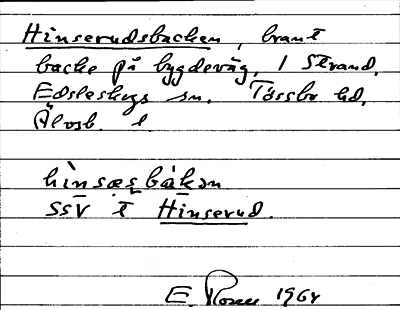 Hinserudsbacken, brant
backe på bygdeväg, i Strand,
Edsleskogs sn. Tössbo hd,
Älvsb. l
hìnsæsbákən
SSV t Hinserud.
E. 1964